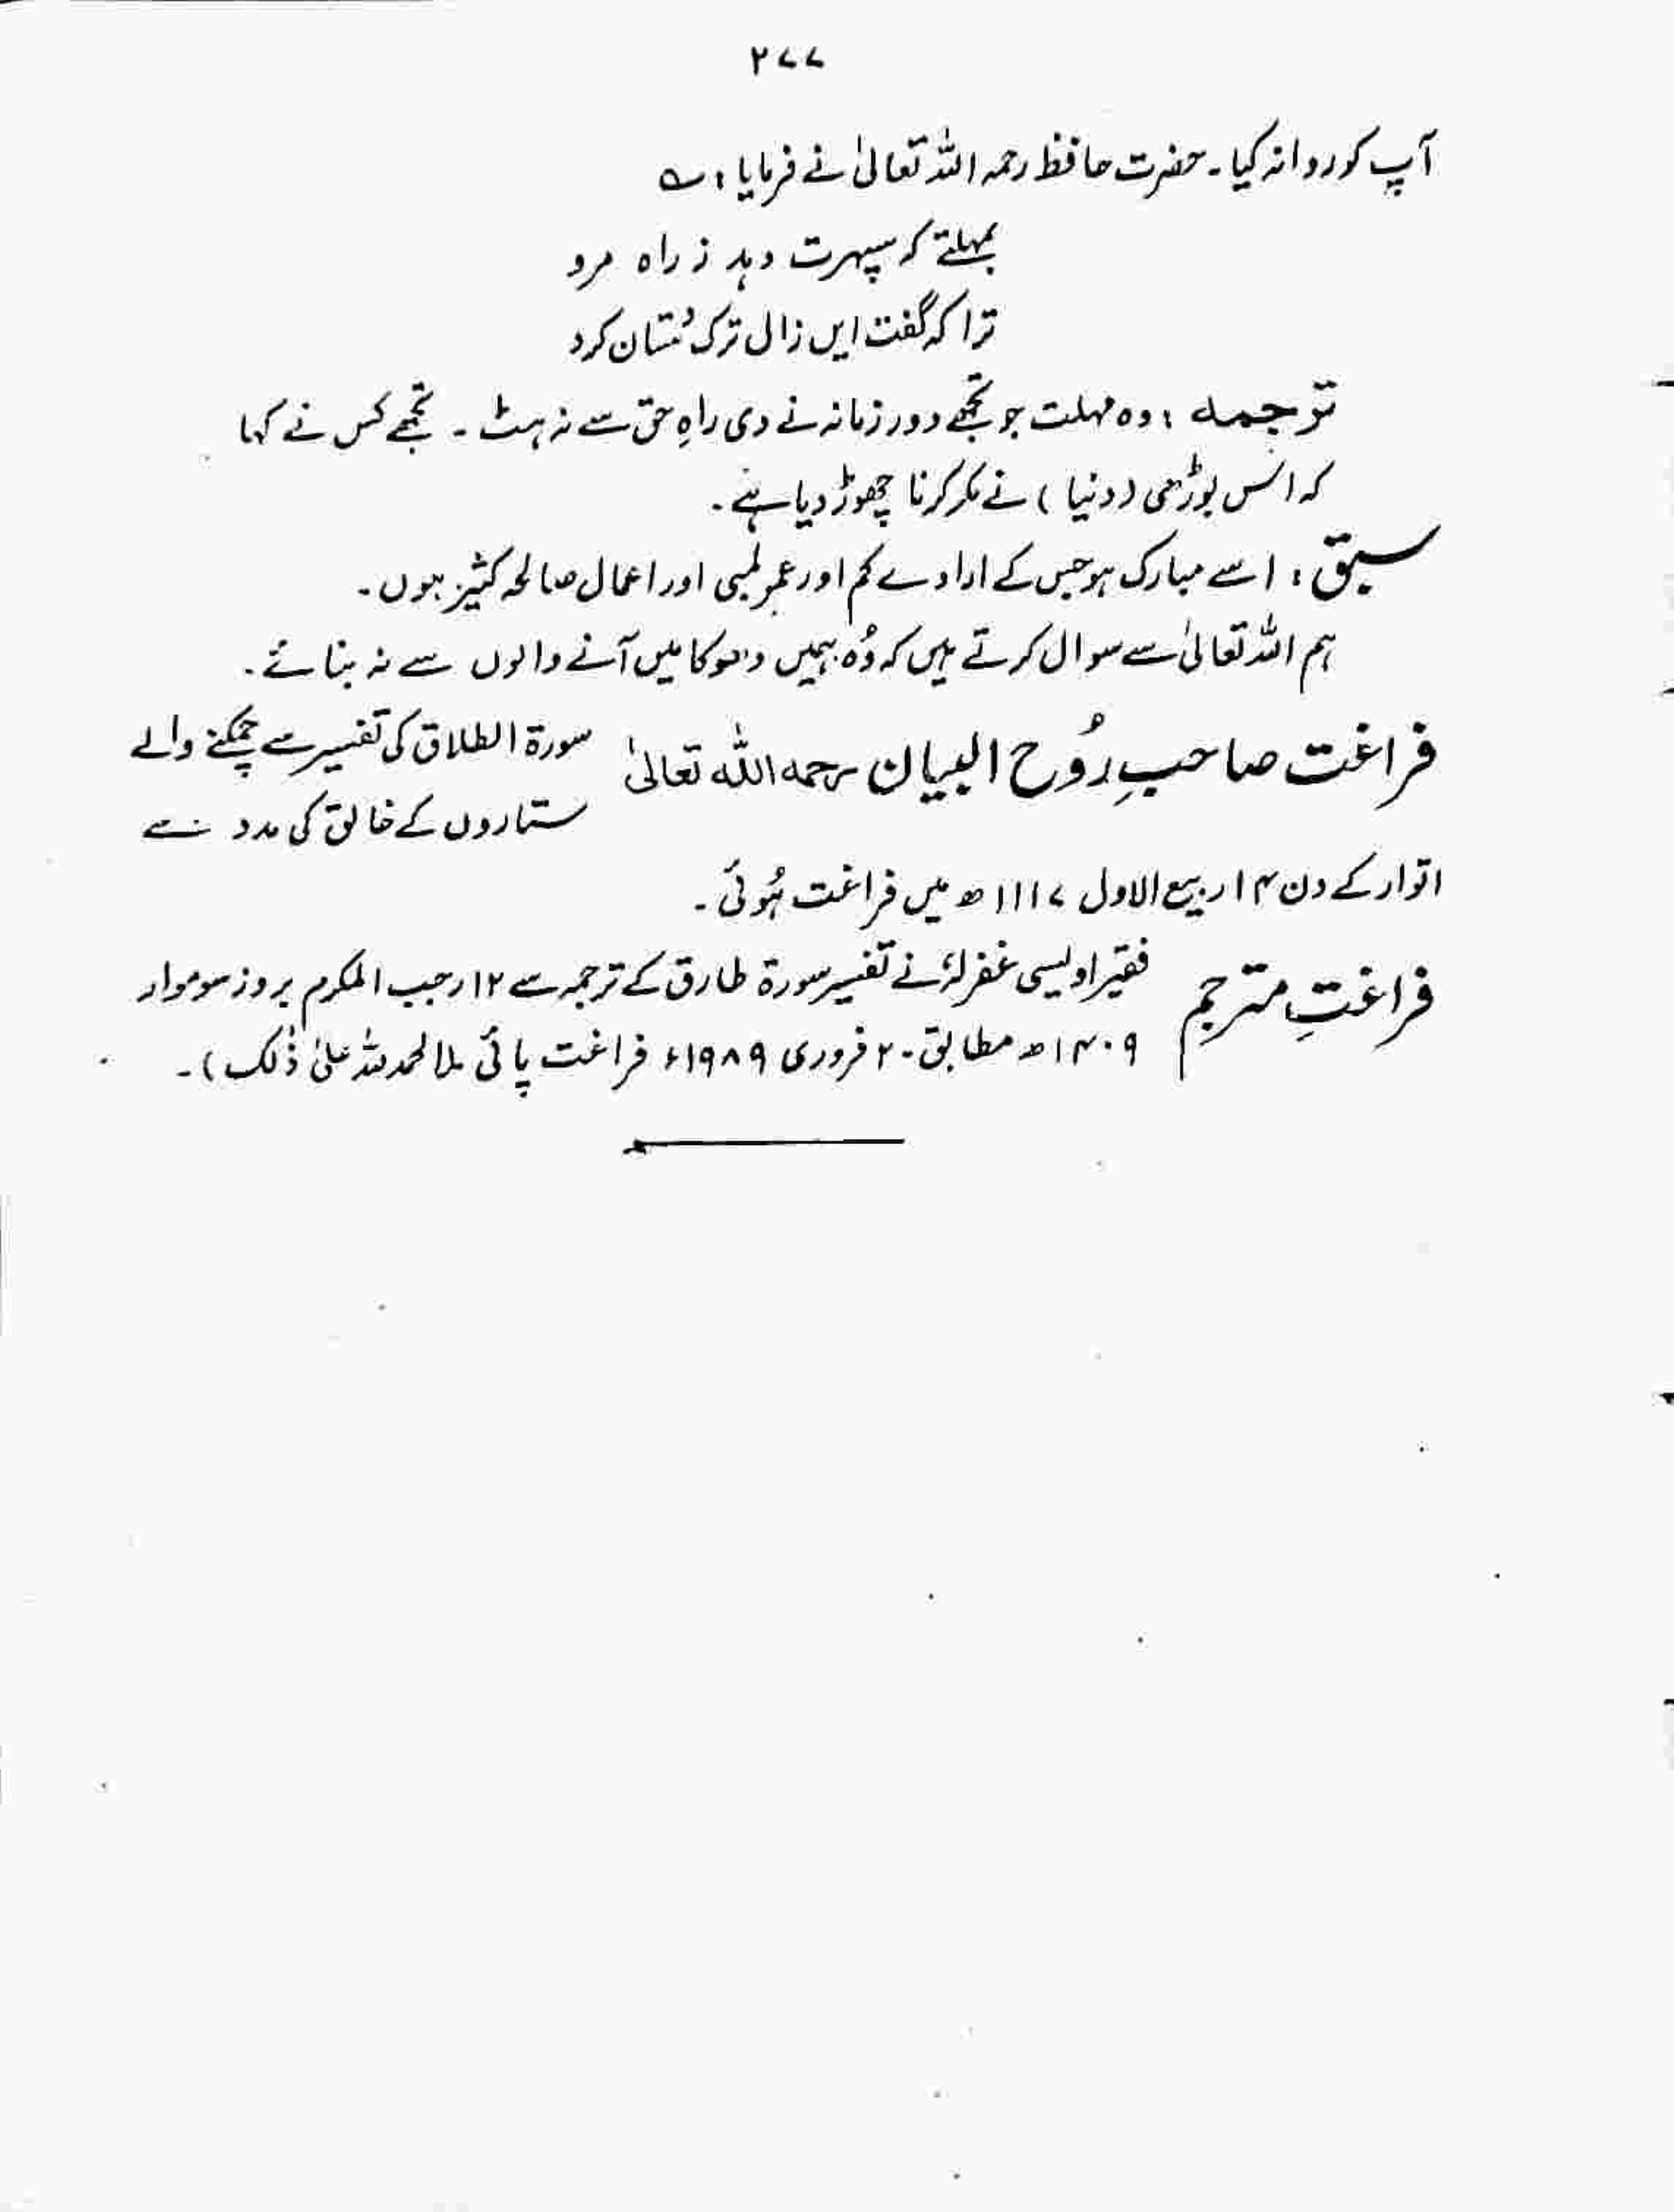 ۲۷۷
آپ کو روانہ کیا۔ حضرت حافظ رحمہ اللہ تعالیٰ نے فرمایا : ؎
بمہلتے کہ سپہرت دہد ز راہ مرو
ترا کہ گفت ایں زال ترک دستان کرد
توجمہ : وہ مہلت جو تجھے دور زمانہ نے دی راہِ حق سے نہ ہٹ ۔ تجھے کس نے کہا
کہ اس بوڑھی (دنیا) نے مکر کرنا چھوڑ دیا ہے۔
سبق : اسے مبارک ہو جس کے ارادے کم اور عمر لمبی اور اعمال صالحہ کثیر ہوں۔
ہم اللہ تعالیٰ سے سوال کرتے ہیں کہ وُہ ہمیں دھوکا میں آنے والوں سے نہ بنائے۔
فراغت صاحبِ رُوح البیان رحمہ اللہ تعالیٰ سورۃ الطلاق کی تفسیر سے چمکنے والے
ستاروں کے خالق کی مدد سے
اتوار کے دن ۱۴ ربیع الاول ۱۱۱۷ھ میں فراغت ہُوئی۔
فراغتِ مترجم فقیر اویسی غفرلہٗ نے تفسیر سورۃ طارق کے ترجمہ سے ۱۲ رجب المکرم بروز سوموار
۱۴۰۹ھ مطابق ۲۰ فروری ۱۹۸۹ء فراغت پائی (الحمد للہ علیٰ ذٰلک)۔